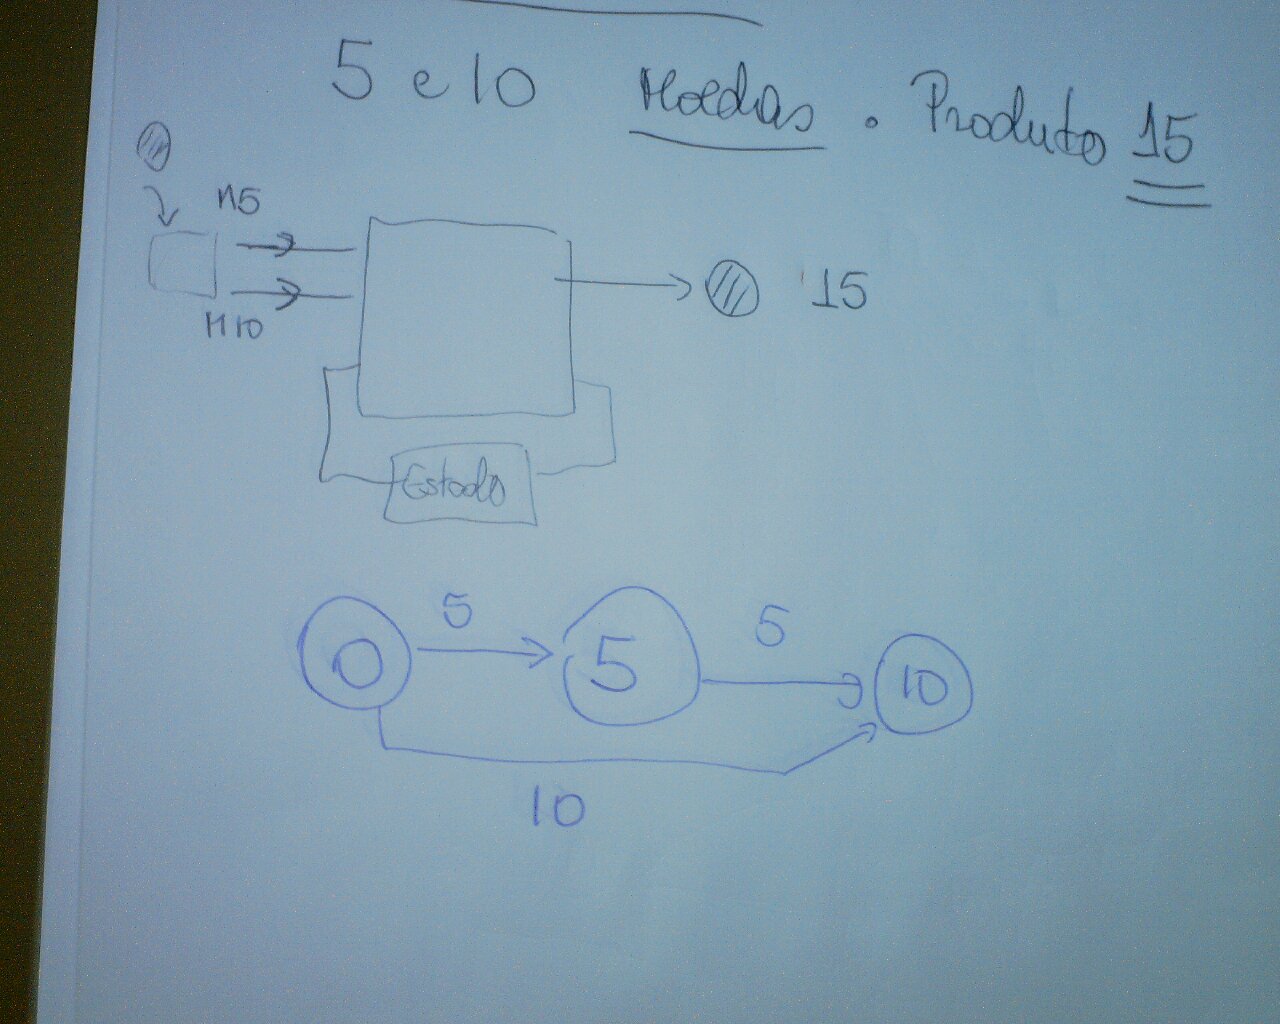 5 e 10 Moedas. Produto 15
M5
M10
15
Estado
5
5
0
5
10
10